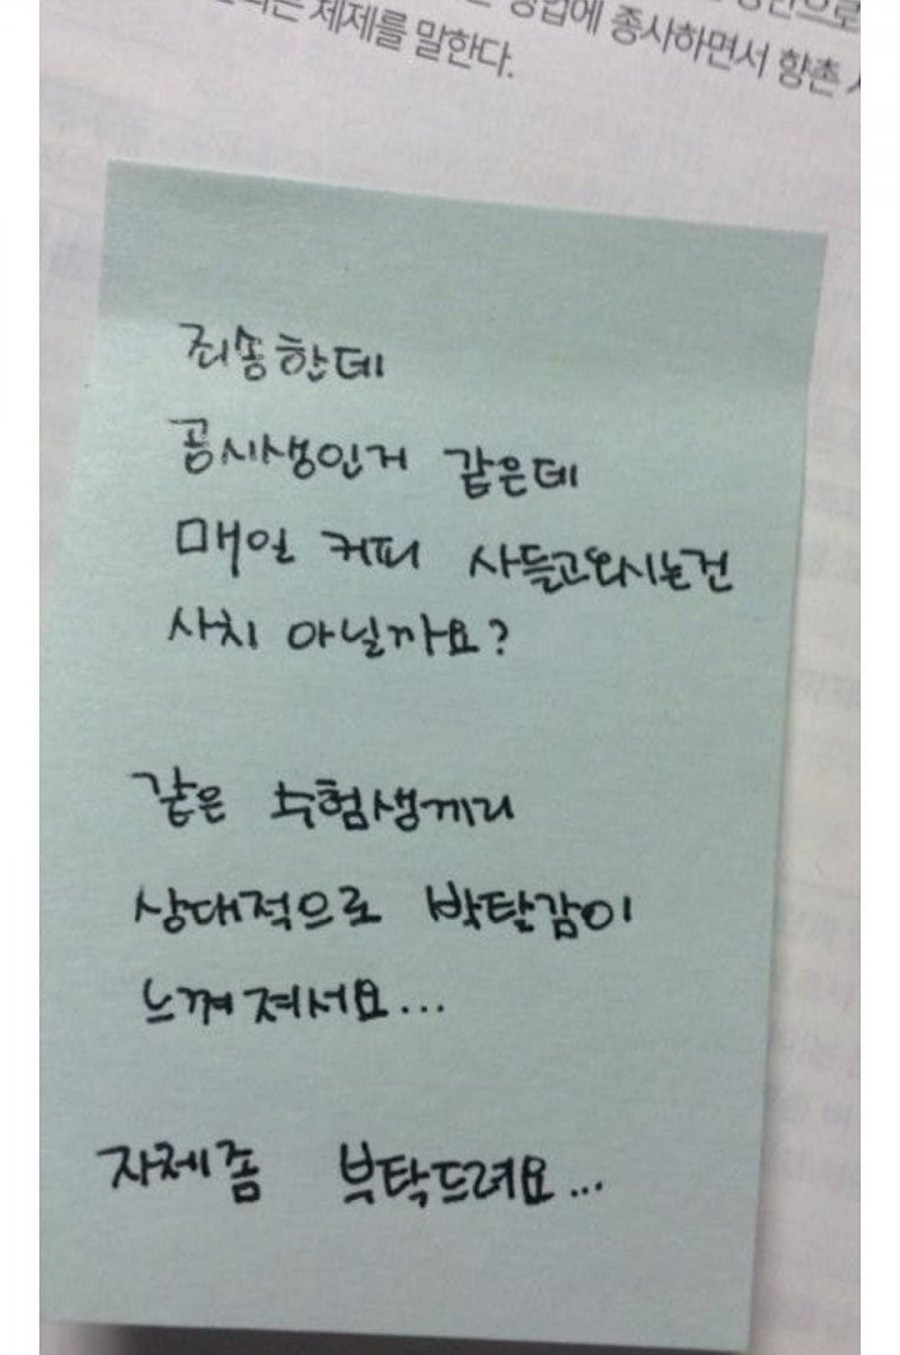 장업에 종사하면서 향촌
체제를 말한다.
죄송한데
공시생인거 같은데
매일 커피 사들고와시는건
사치 아닐까요?
같은 수험생끼리
상대적으로 박탈감이
느껴져서요...
자제좀 부탁드려요...